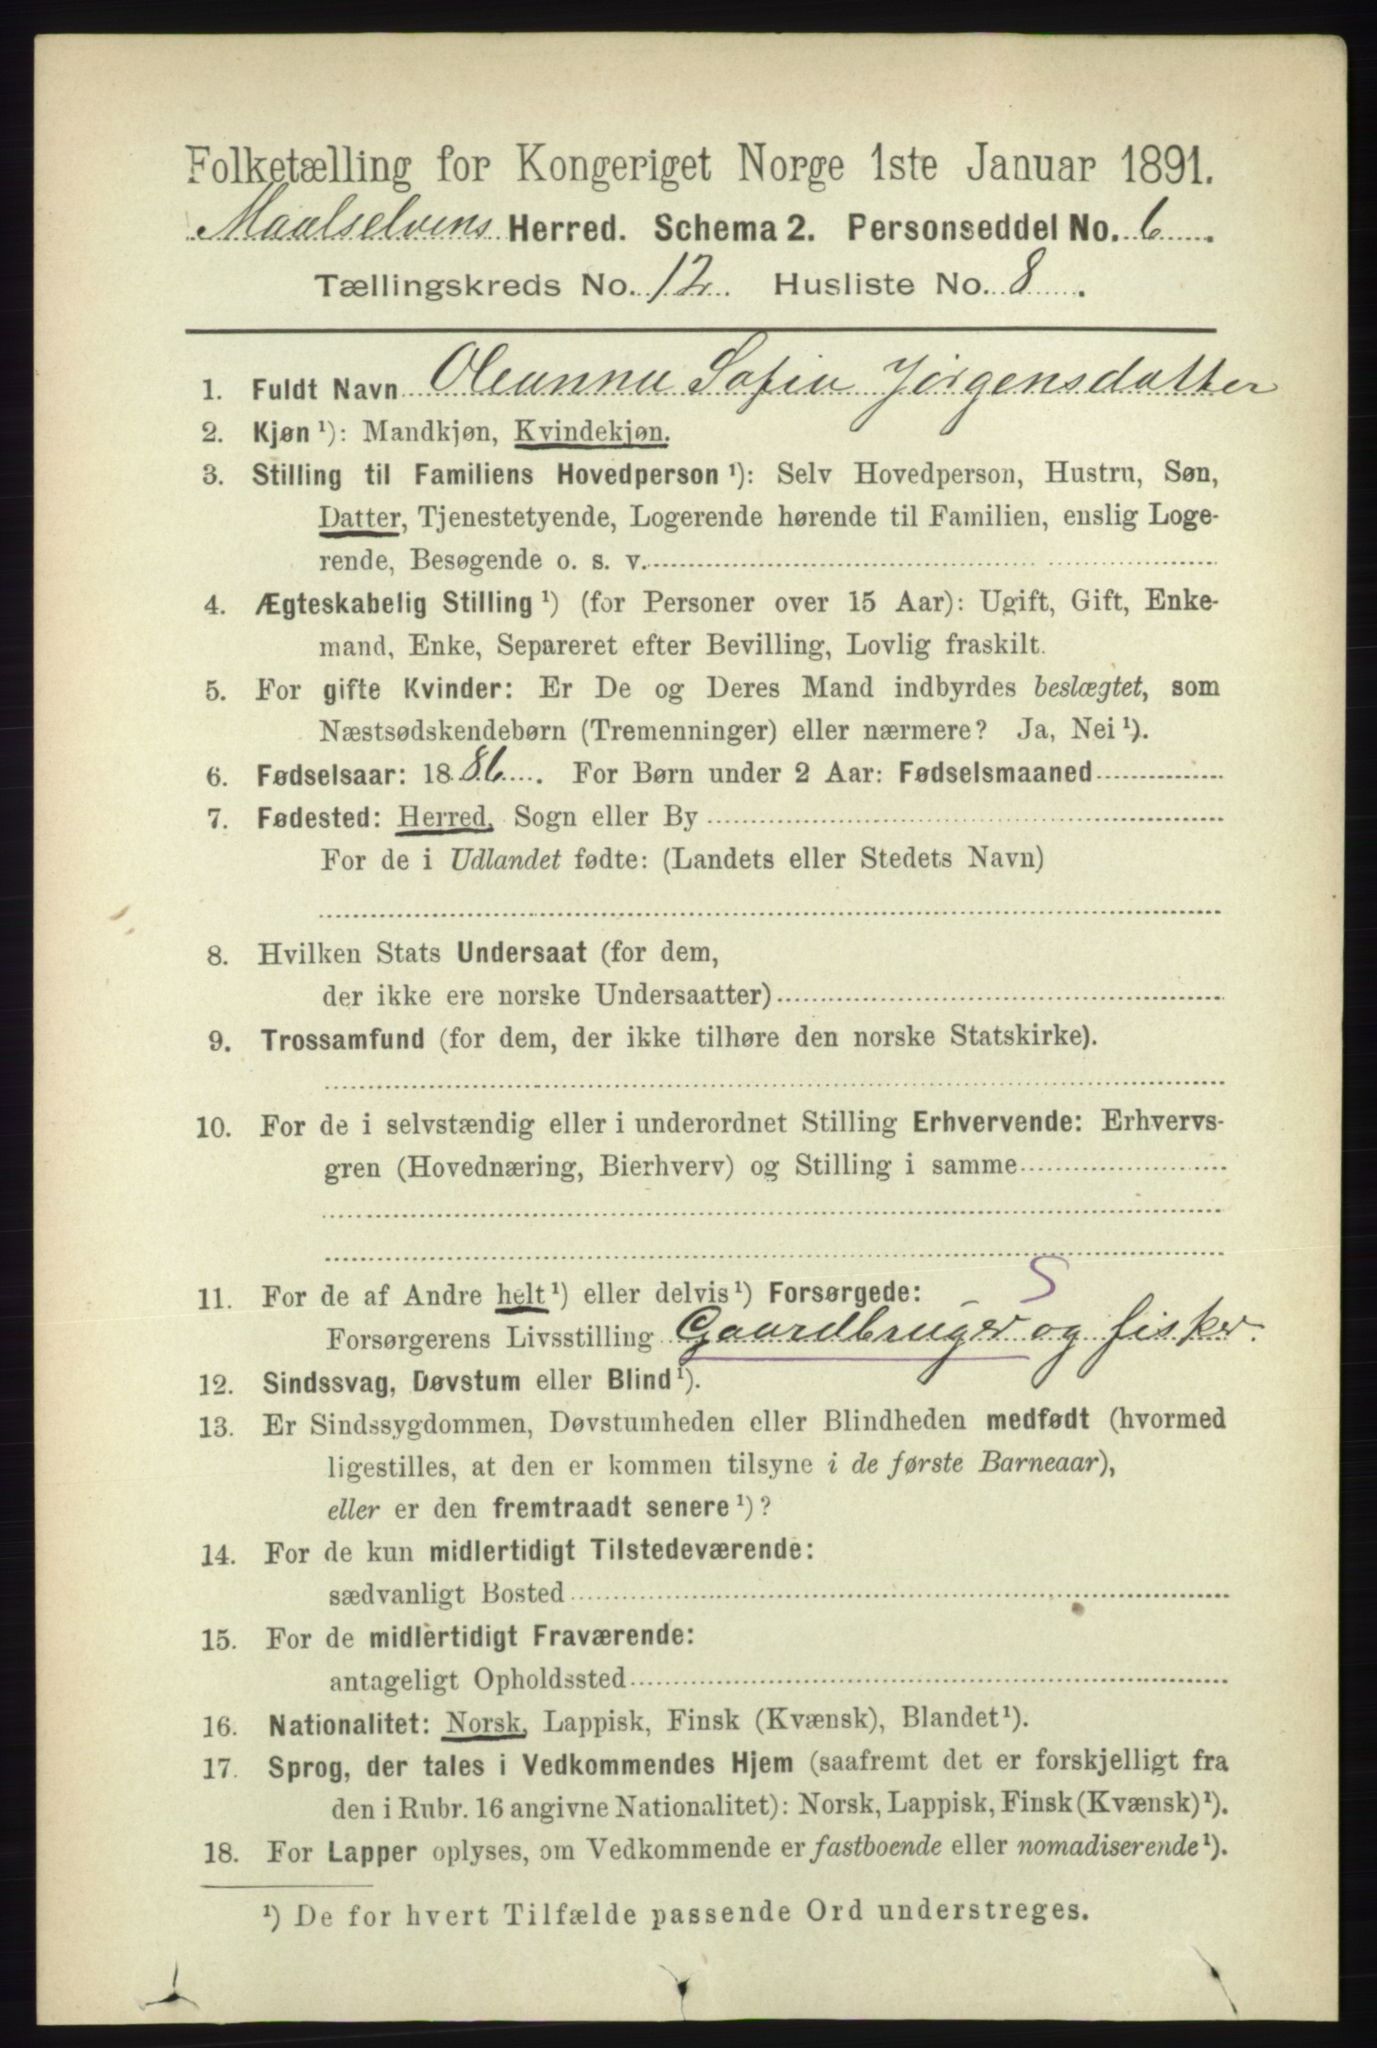 Folketælling for Kongeriget Norge 1ste Januar 1891.
Maalselvens Herred. Schema 2. Personseddel No. 6.
Tællingskreds No. 12. Husliste No. 8.
1. Fuldt Navn Oleanna Sofia Jørgensdatter
2. Kjøn ¹): Mandkjøn, Kvindekjøn.
3. Stilling til Familiens Hovedperson ¹): Selv Hovedperson, Hustru, Søn,
Datter, Tjenestetyende, Logerende hørende til Familien, enslig Loge-
rende, Besøgende o. s. v.
4. Ægteskabelig Stilling ¹) (for Personer over 15 Aar): Ugift, Gift, Enke-
mand, Enke, Separeret efter Bevilling, Lovlig fraskilt.
5. For gifte Kvinder: Er De og Deres Mand indbyrdes beslægtet, som
Næstsødskendebørn (Tremenninger) eller nærmere? Ja, Nei ¹).
6. Fødselsaar: 1886. For Børn under 2 Aar: Fødselsmaaned
7. Fødested: Herred, Sogn eller By
For de i Udlandet fødte: (Landets eller Stedets Navn)
8. Hvilken Stats Undersaat (for dem,
der ikke ere norske Undersaatter)
9. Trossamfund (for dem, der ikke tilhøre den norske Statskirke).
10. For de i selvstændig eller i underordnet Stilling Erhvervende: Erhvervs-
gren (Hovednæring, Bierhverv) og Stilling i samme
S
11. For de af Andre helt ¹) eller delvis ¹) Forsørgede:
Forsørgerens Livsstilling Gaardbruger og fisker.
12. Sindssvag, Døvstum eller Blind ¹).
13. Er Sindssygdommen, Døvstumheden eller Blindheden medfødt (hvormed
ligestilles, at den er kommen tilsyne i de første Barneaar),
eller er den fremtraadt senere ¹)?
14. For de kun midlertidigt Tilstedeværende:
sædvanligt Bosted
15. For de midlertidigt Fraværende:
antageligt Opholdssted
16. Nationalitet: Norsk, Lappisk, Finsk (Kvænsk), Blandet ¹).
17. Sprog, der tales i Vedkommendes Hjem (saafremt det er forskjelligt fra
den i Rubr. 16 angivne Nationalitet): Norsk, Lappisk, Finsk (Kvænsk) ¹).
18. For Lapper oplyses, om Vedkommende er fastboende eller nomadiserende ¹).
¹) De for hvert Tilfælde passende Ord understreges.